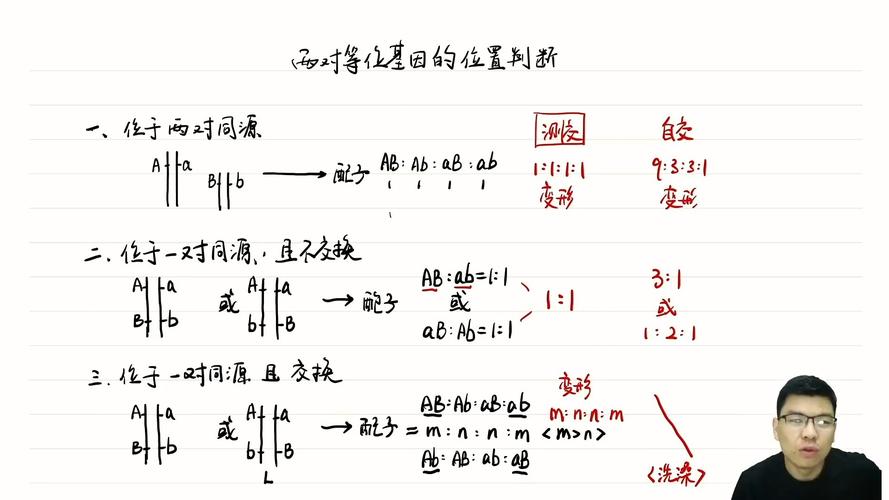 两对等位基因的位置判断
一、位于两对同源
测交
自交
A a
B b
配子 AB:Ab:aB:ab
1 1 1 1
1:1:1:1
变形
9:3:3:1
变形
二、位于一对同源,且不交换
A a 或 A a
B b b B
配子
AB:ab=1:1
或
aB:Ab=1:1
1:1
3:1
或
1:2:1
三、位于一对同源 且 交换
A a 或 A a
B b b B
配子
AB:Ab:aB:ab
= m:n:n:m <m>n>
Ab:AB:ab:aB
变形
m:n:n:m
<洗染>